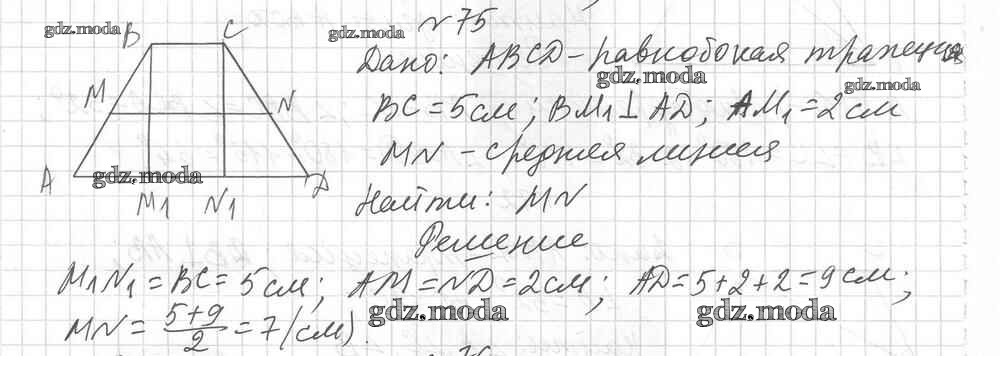 № 75
gdz.moda
B
C
gdz.moda
Дано: ABCD - равнобокая трапеция
gdz.moda
gdz.moda
M
N
BC = 5 см; BM₁ ⊥ AD; AM₁ = 2 см
MN - средняя линия
A
gdz.moda
D
M₁ N₁
Найти: MN
Решение
M₁N₁ = BC = 5 см; AM = ND = 2 см; AD = 5+2+2 = 9 см;
gdz.moda
gdz.moda
MN = (5+9)/2 = 7 (см).